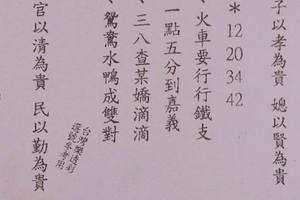 子以孝為貴 媳以賢為貴
＊12 20 34 42
、火車要行行鐵支
一點五分到嘉義
、三八查某嬌滴滴
、鴛鴦水鴨成雙對
台灣樂透彩
選號參考用
官以清為貴 民以勤為貴